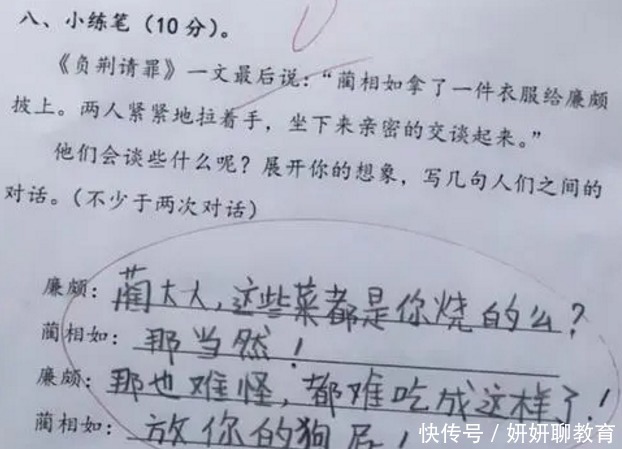 八、小练笔（10分）。
《负荆请罪》一文最后说：“蔺相如拿了一件衣服给廉颇
披上。两人紧紧地拉着手，坐下来亲密的交谈起来。”
他们会谈些什么呢？展开你的想象，写几句人们之间的
对话。（不少于两次对话）
廉颇：蔺大人，这些菜都是你烧的么？
蔺相如：那当然！
廉颇：那也难怪，都难吃成这样了！
蔺相如：放你的狗屁！
快传号／妍妍聊教育